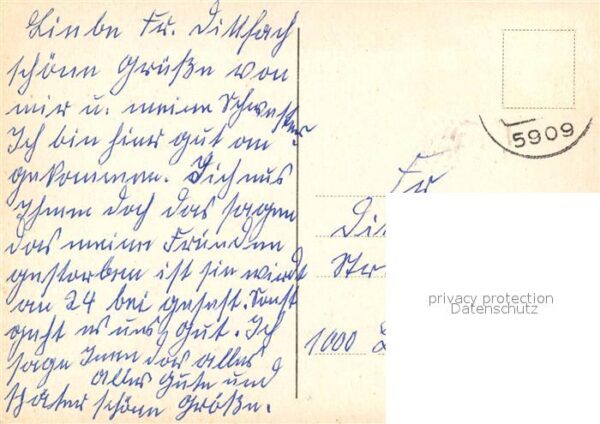 Liebe Fr. Dittfach
schöne Grüße von
mir u. meine Schwester
Ich bin hier gut an
gekommen. Ich mus
Ihnen doch das sagen
das meine Freunden
gestorben ist sie wirdt
am 24 bei gesest. Sonst
geht es uns gut. Ich
sage Inen das alles
alles Gute und
später schöne Größe.
5909
Fr
Di
Str
1000
privacy protection
Datenschutz